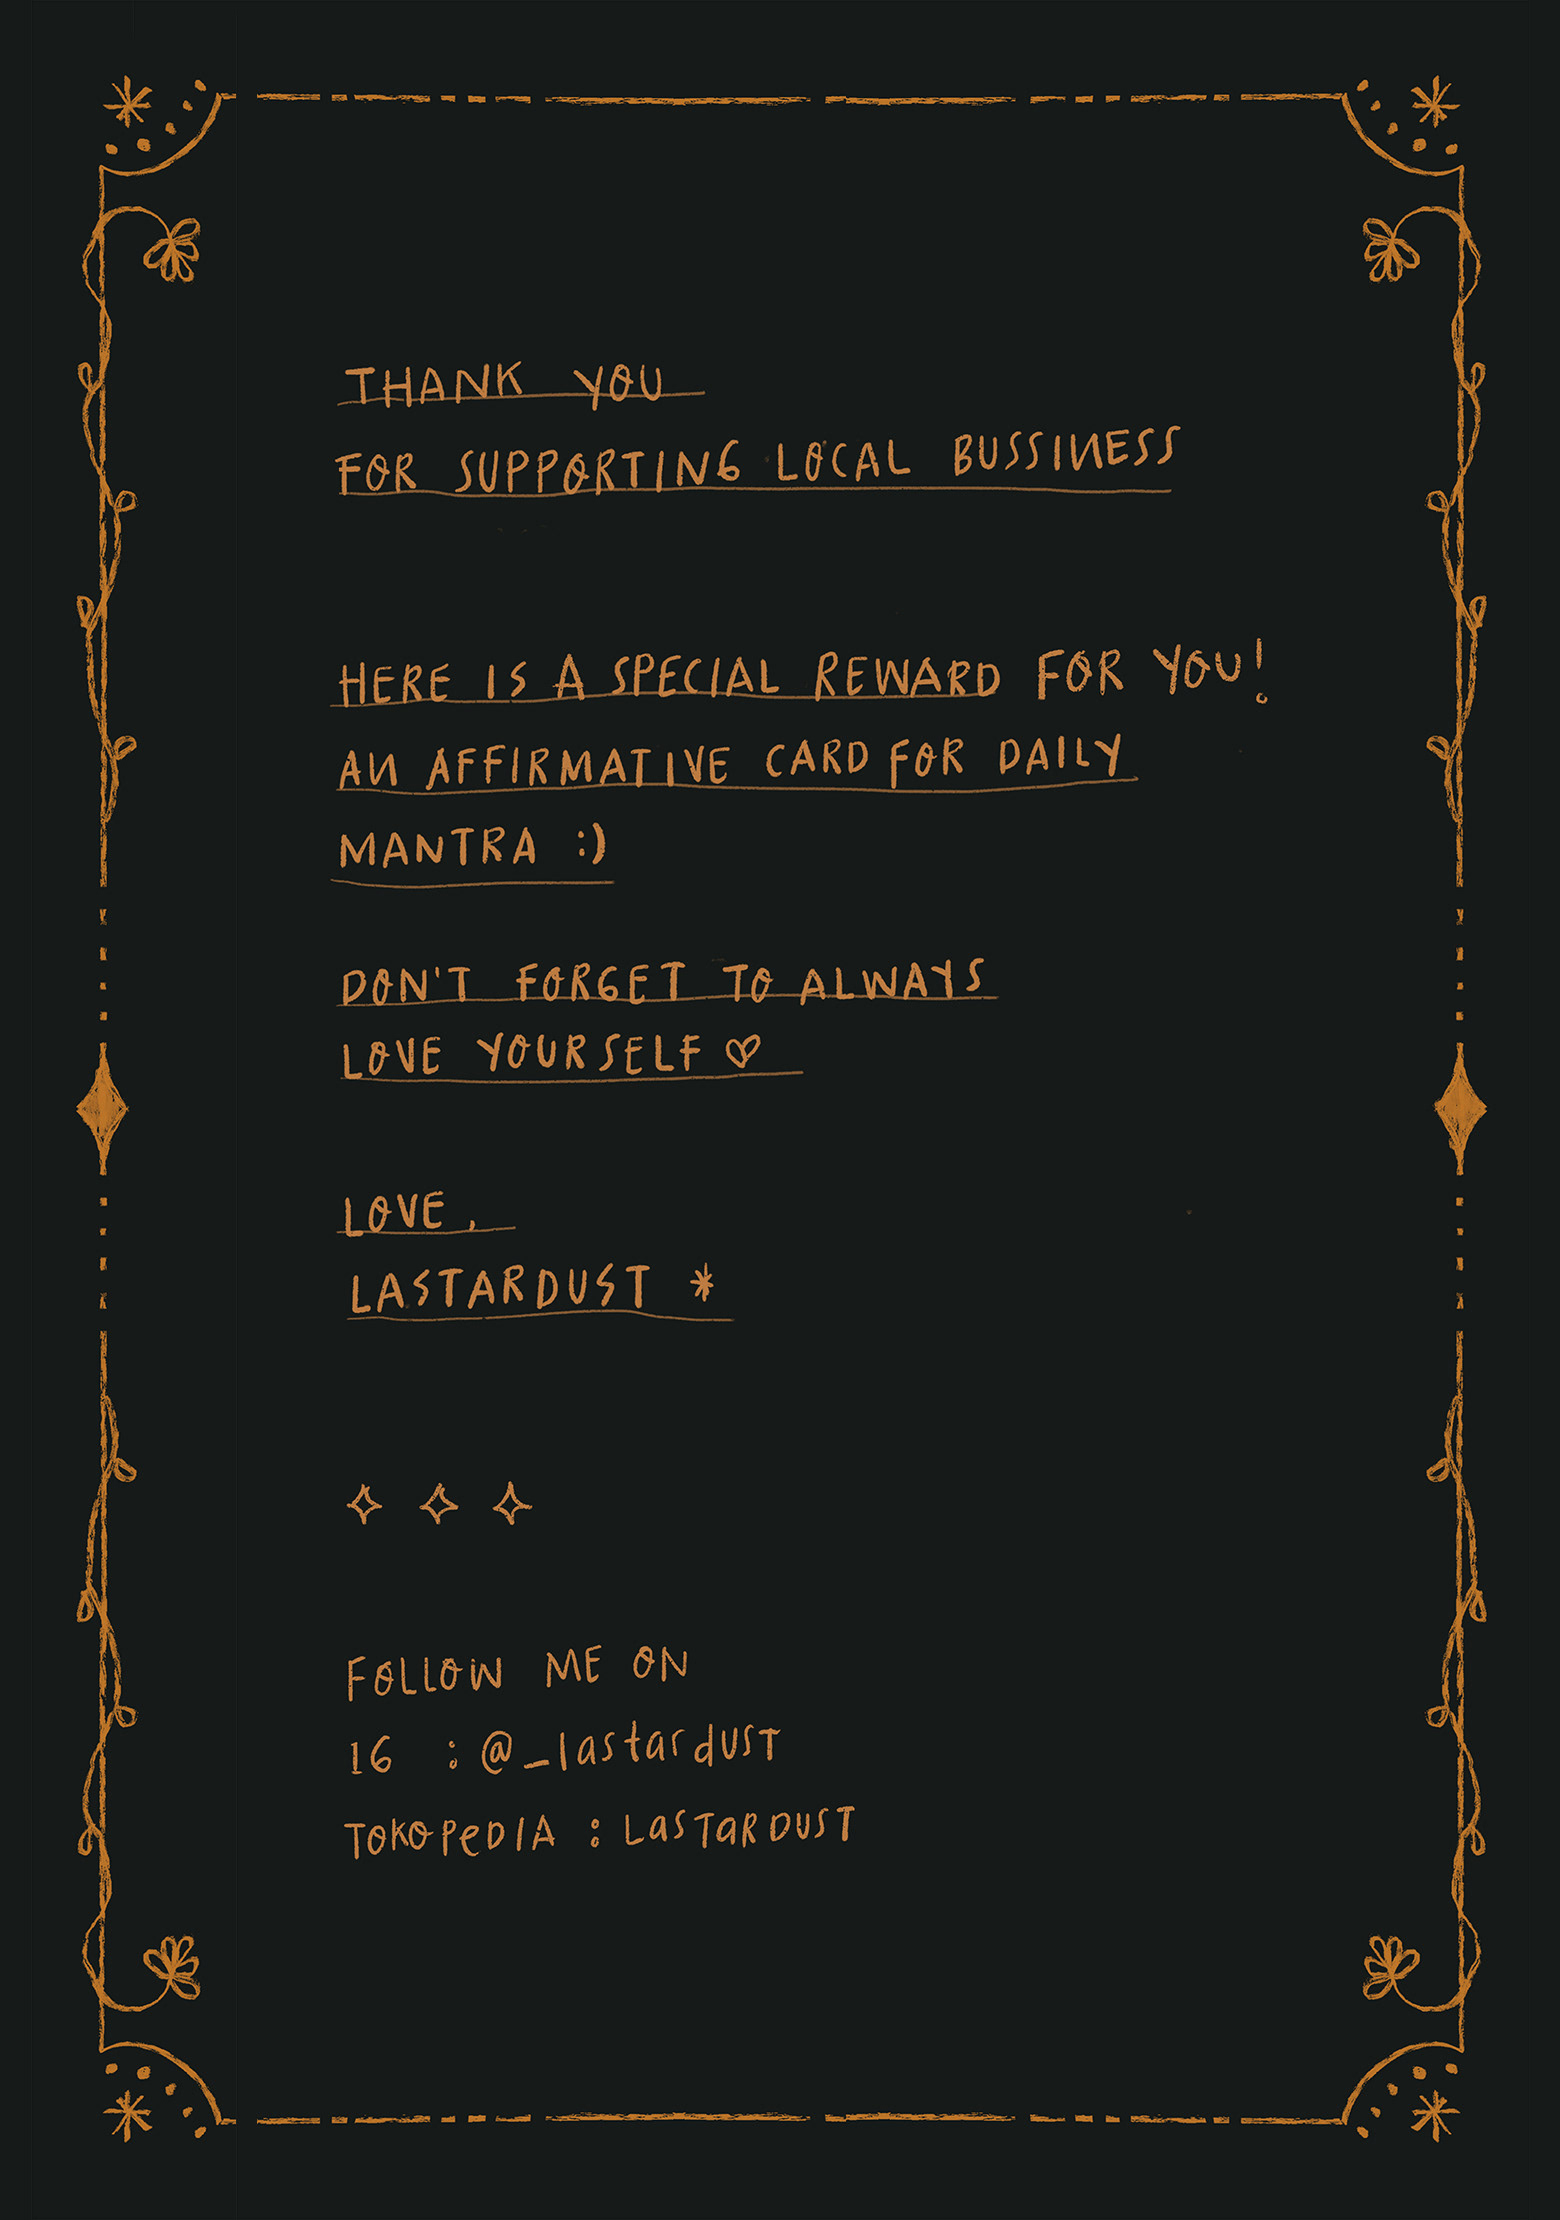 THANK YOU
FOR SUPPORTING LOCAL BUSSINESS
HERE IS A SPECIAL REWARD FOR YOU!
AN AFFIRMATIVE CARD FOR DAILY
MANTRA :)
DON'T FORGET TO ALWAYS
LOVE YOURSELF ♡
LOVE,
LASTARDUST *
FOLLOW ME ON
IG : @_lastardust
TOKOPeDIA : LaSTaRDUST